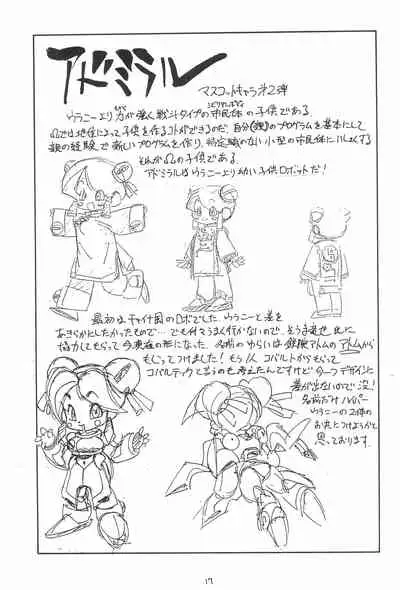 アドミラル
マスコットキャラ才2弾
ウラニーより力が強く戦斗タイプの市民体の子供である。
Ωでは地位によって子供を作るコトができるのだ。自分(親)のプログラムを基本にして
親の経験で新しいプログラムを作り、特定職のない小型の市民体にいしょくする
それがΩの子供である。
アドミラルはウラニーより幼い子供ロボットだ!
最初はチャイナ国のロボでした。ウラニーと差を
あきらかにしたかったもので…でも何てうまく行かないので、
協力してもらって今現在の形になった。名前のゆらいは鉄腕アトムのアトムから
もじってつけました!もう1人コバルトからもらって
コバルテックと言うのも考えたんですけど今一つデザインに
差が出ないので没!
名前だけハイパー
ウラニーの2体の
お共につけようかと
思っております。
17